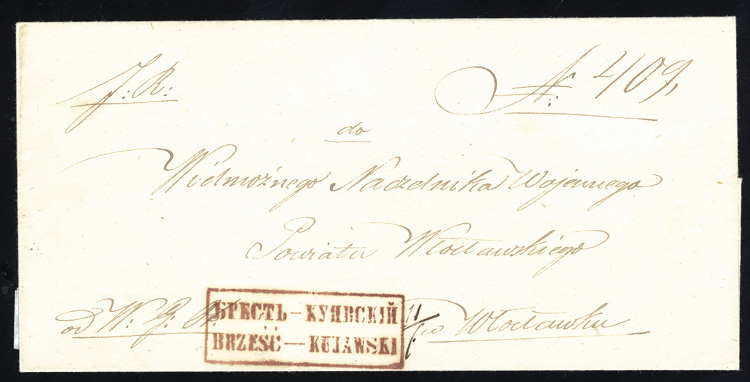 J: R: N: 409,
do
Wielmożnego Naczelnika Wojennego
Powiatu Włocławskiego
od W.
БРЕСТЬ — КУЯВСКІЙ
BRZEŚĆ — KUJAWSKI
11/
Włocławku